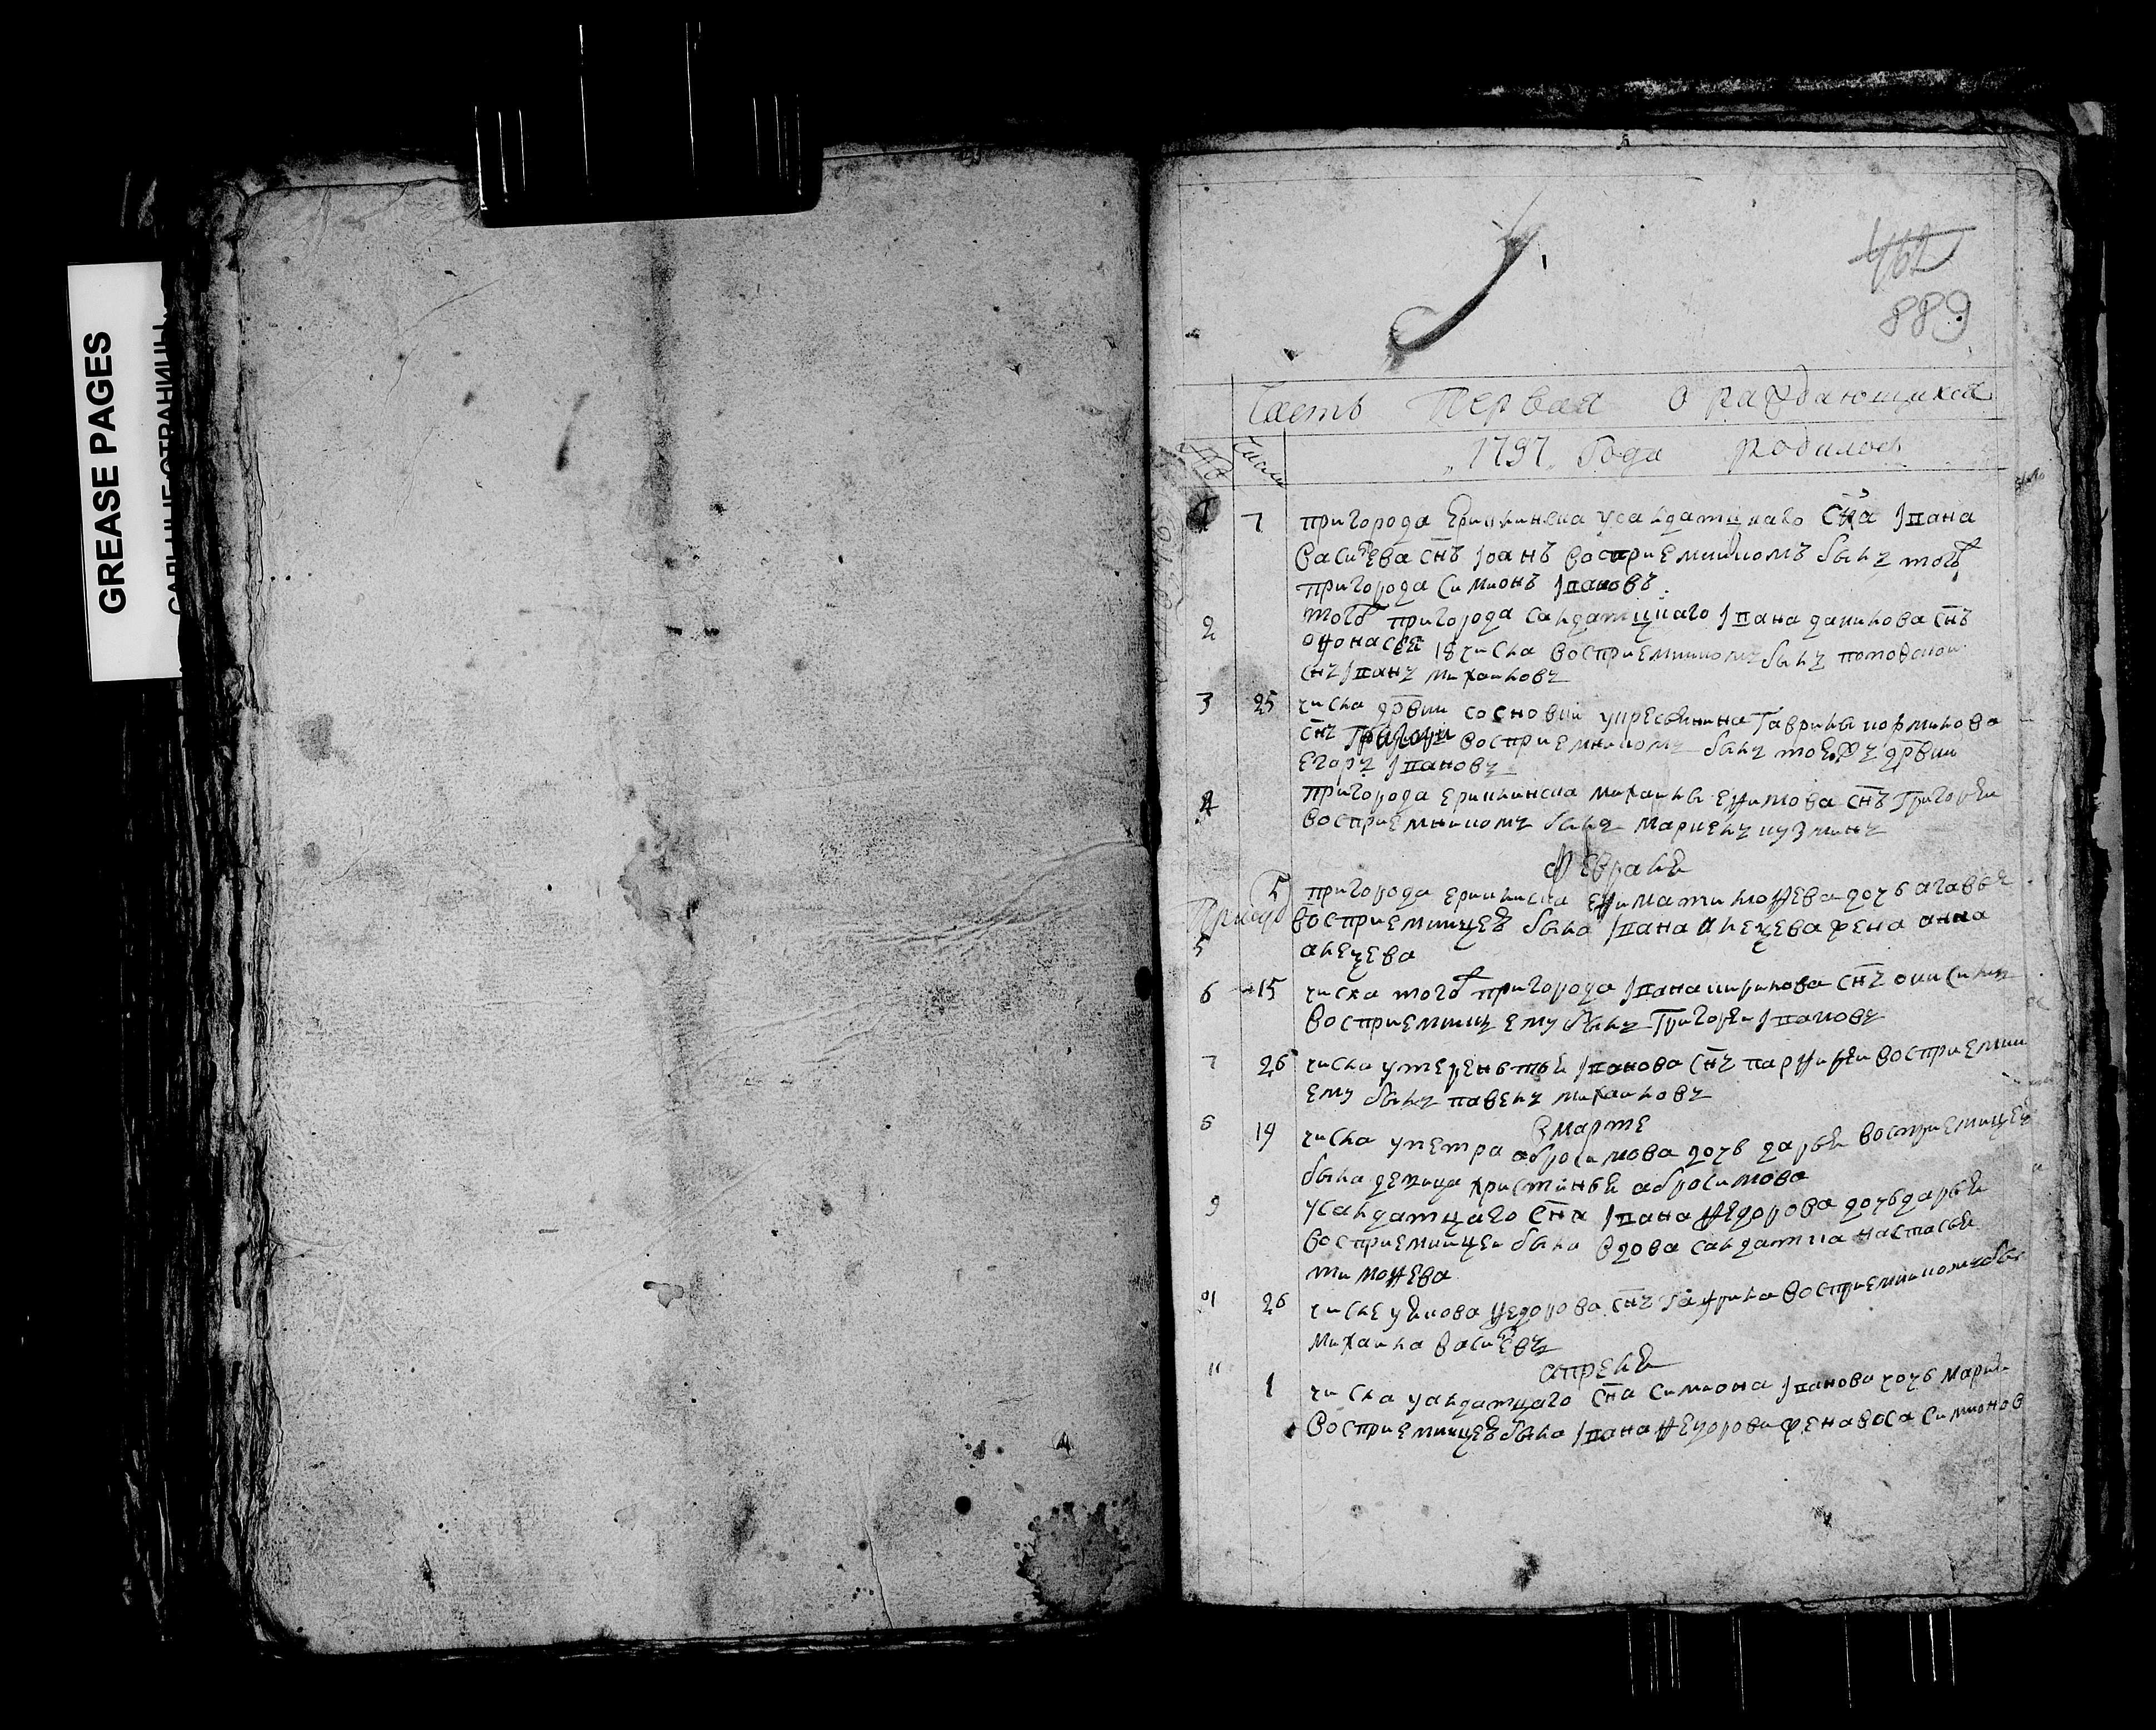 GREASE PAGES
САЛЬНЫЕ СТРАНИЦЫ
462
889
Часть Первая о раждающихся
1797 Года Родилось
Числа
1 7 пригорода Ериклинска у салдатцкаго сна Iвана
Василева снъ Iоанъ восприемникомъ былъ того
пригорода Симионъ Iвановъ
2 того пригорода салдатцкаго Iвана данилова снъ
Афонасей 18 числа восприемникомъ былъ
снъ Iванъ михаиловъ
3 25 числа дрвни сосновки у кресьянина Гаврилы кормилова
снъ Григорей восприемникомъ былъ тоежъ дрвни
Егоръ Iвановъ
4 пригорода ериклинска михаилы ефимова снъ Григорей
восприемникомъ былъ маркелъ кузминъ
февраля
5 пригорода ериклинска екима тимофева дочь агафья
восприемницей была Iвана алекцева жена анна
5 алекцева
6 15 числа того пригорода Iвана кирилова снъ
восприемник ему былъ Григорей Iвановъ
7 26 числа у терентья Iванова снъ парфирей восприемник
ему былъ павелъ михаиловъ
в марте
8 19 числа у петра абросимова дочь дарья восприемницей
была девица христинья абросимова
9 у салдатцкаго сна Iвана федорова дочь дарья
восприемницей была вдова салдатка настасья
тимофева
01 26 числа у якова федорова снъ гаврила восприемникомъ бы
михаила василевъ
апреля
11 1 числа у салдатцкаго сна симиона Iванова дочь марья
восприемницей была Iвана федорова жена васа симионов